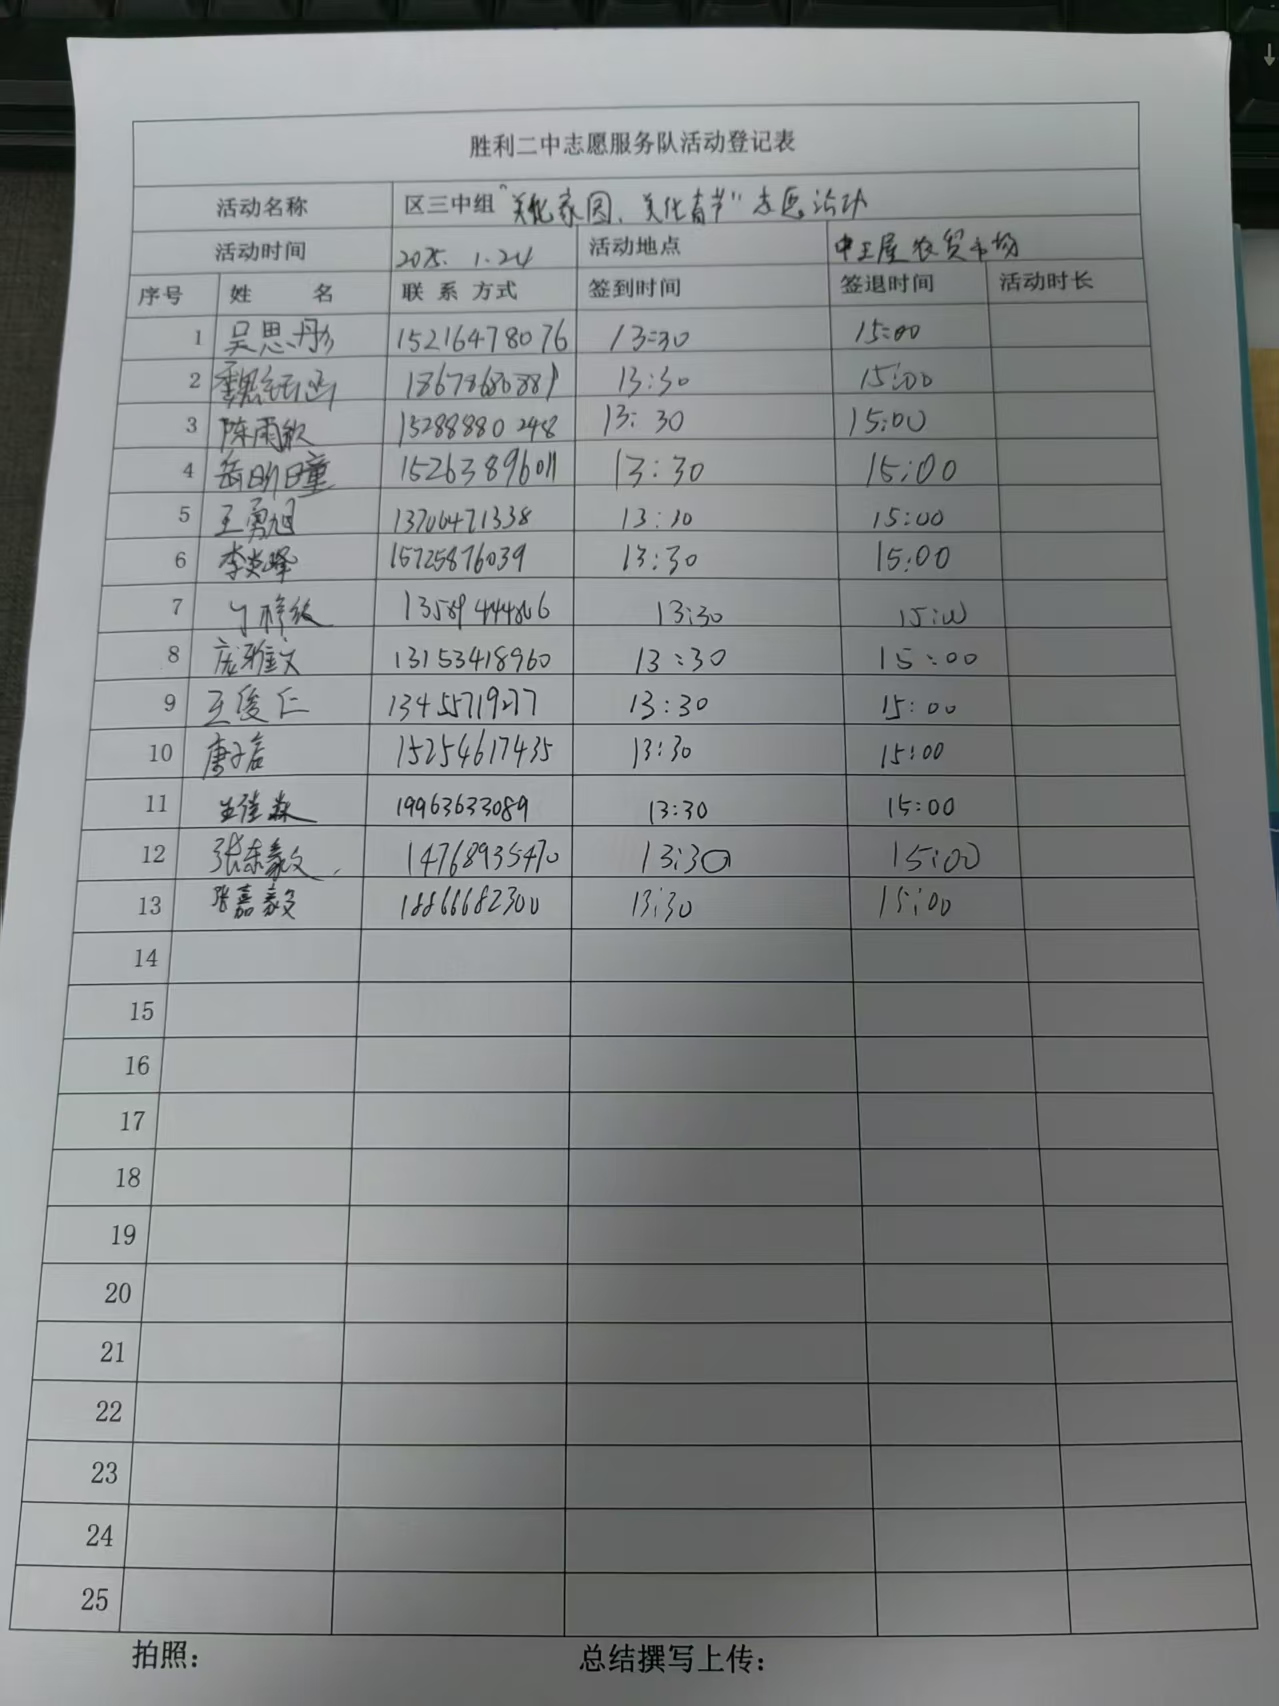 胜利二中志愿服务队活动登记表
活动名称 区三中组"美化家园、美化春节"志愿活动
活动时间 2025.1.24 活动地点 中王屋农贸市场
序号 姓 名 联系方式 签到时间 签退时间 活动时长
1 吴思彤 15216478076 13:30 15:00
2 魏 13:30 15:00
3 陈雨欣 15288880248 13:30 15:00
4 岳明瞳 15263896011 13:30 15:00
5 王勇旭 13706471338 13:30 15:00
6 李英峰 15725876039 13:30 15:00
7 13589444806 13:30 15:00
8 庞雅文 13153418960 13:30 15:00
9 王俊仁 13:30 15:00
10 唐子启 15254617435 13:30 15:00
11 王佳森 19963633089 13:30 15:00
12 张东毅 14768935470 13:30 15:00
13 张嘉毅 18866682300 13:30 15:00
14
15
16
17
18
19
20
21
22
23
24
25
拍照: 总结撰写上传: